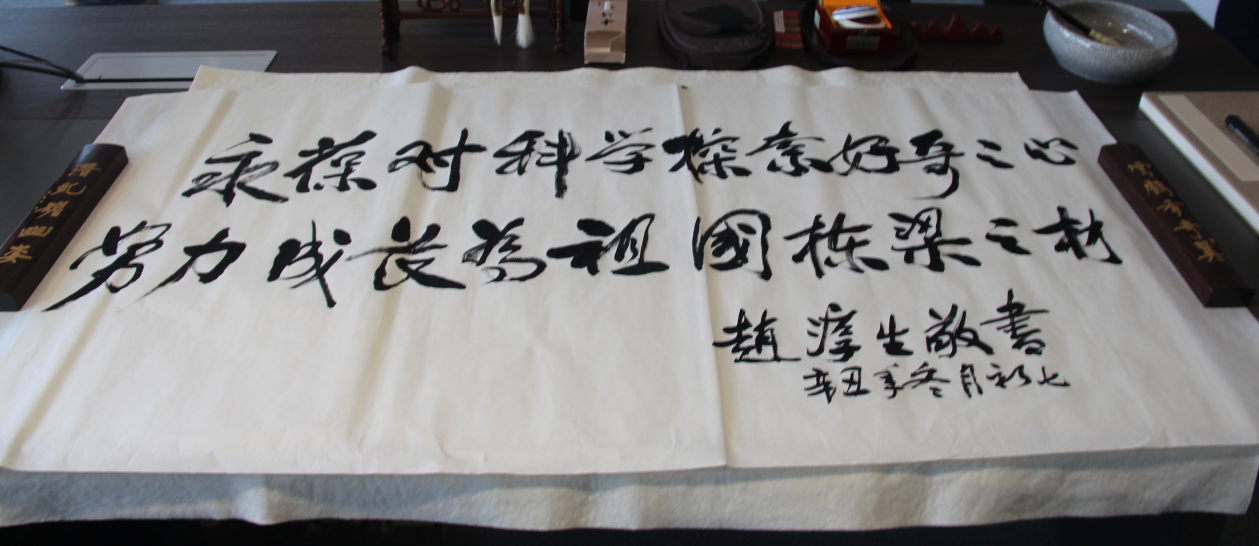 永葆对科学探索好奇之心
努力成長為祖國栋梁之材
趙淳生敬書
辛丑年冬月初七